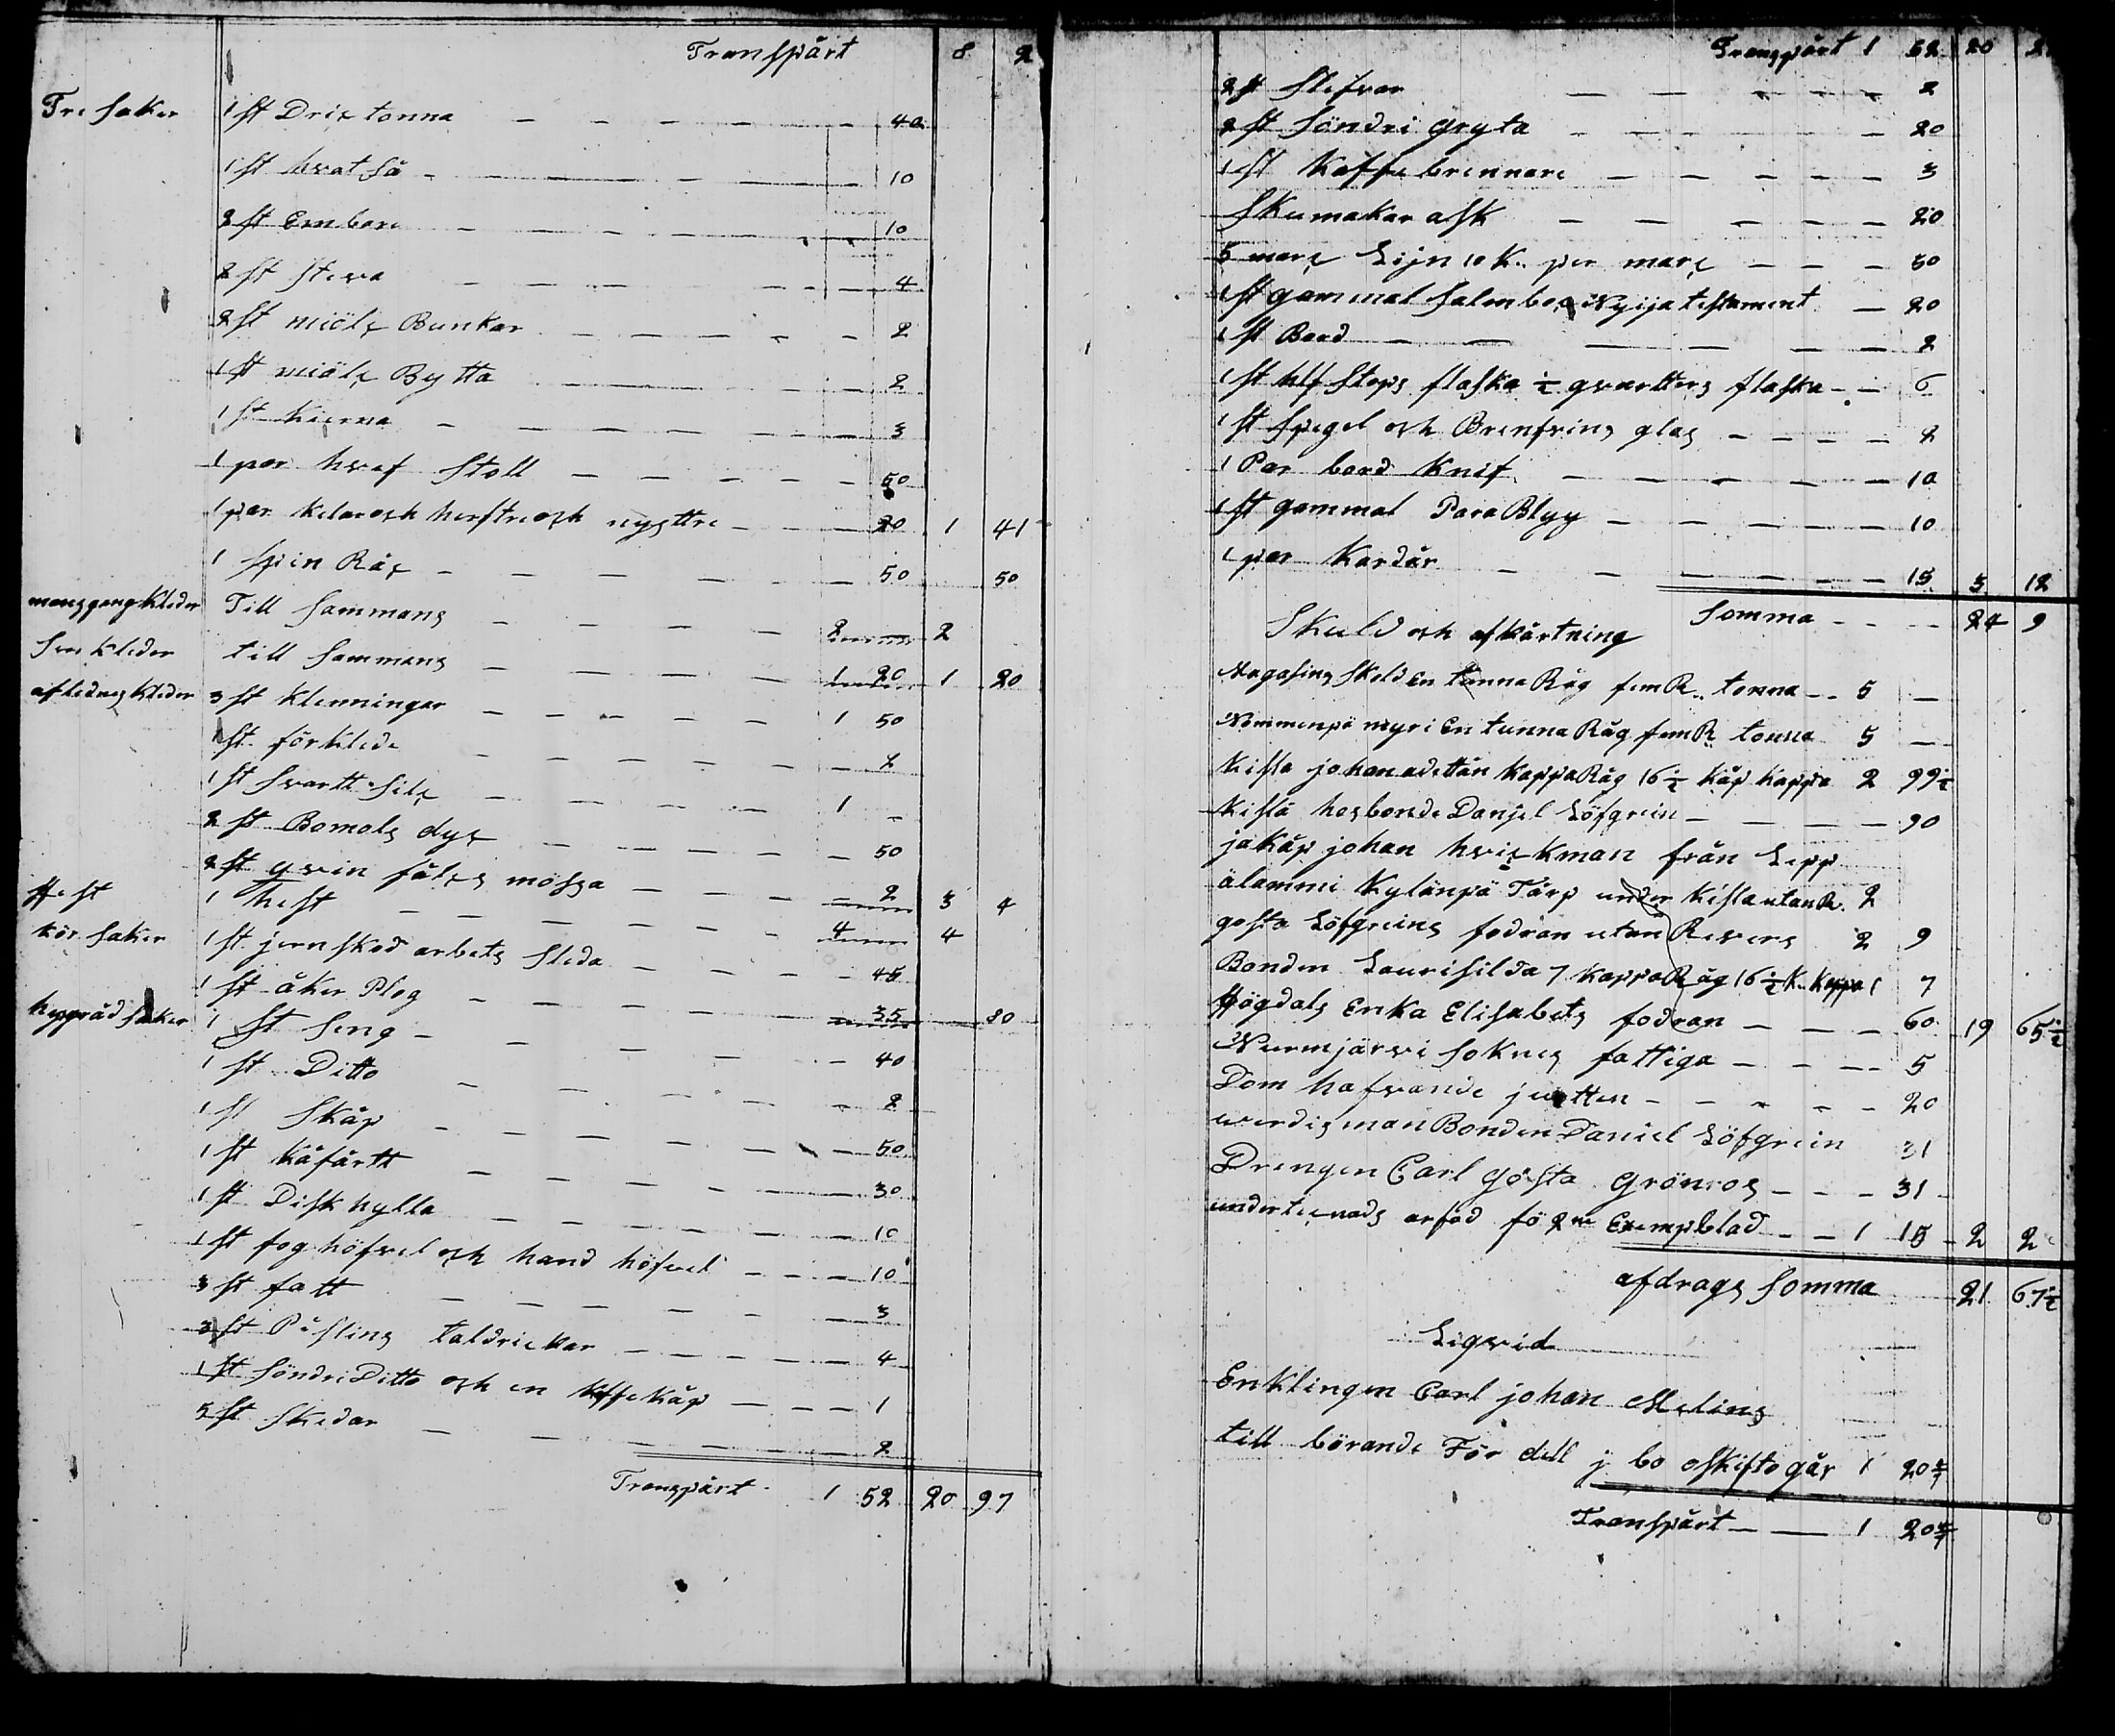 Transpårt 8 2
Tre saker 1 st Drix tonna — — — — — — 40
1 st hvat så — — — — — — 10
2 st Embare — — — — — — 10
2 st steva — — — — — — 4
2 st miöls Bunkar — — — — — 2
1 st miöls Bytta — — — — 2
1 st Kierna — — — — — — 3
1 par hvef stoll — — — — — 50
1 par kelar och herstre och nysttre — — — 20 1 41
1 spin Råç — — — — — — 50 50
mansgang kleder Till sammans — — — — 2 — 2
sve kleder till sammans — — — — 1 20 1 20
aflednes kleder 3 st klenningar — — — — — 1 50
1 st förklede — — — — — — 2
1 st svartt silç — — — — 1 –
2 st Bomols dyç — — — — — — 50
2 st qvin fålçs mössa — — — — 2 3 4
Hest 1 hest — — — — — — 4 4
kör saker 1 st jern skod arbets sleda — — — — 45
1 st åker Plog — — — — — 35 80
hussråd saker 1 st seng — — — — — — 40
1 st Ditto — — — — — — 2
1 st Skåp — — — — — — 50
1 st kåfårtt — — — — — — 30
1 st Disk hylla — — — — — — 10
1 st foghöfvel och hand höfvel — — — 10
3 st fatt — — — — — — 3
3 st Påsling taldrickar — — — — — 4
1 st söndri Ditto och en kaffe kåp — — — 1
5 st skedar — — — — — — 2
Transpårt 1 52 20 97
Transpårt 1 52 20
2 st slefvar — — — — — — 2
2 st söndri gryta — — — — — — 20
1 st kaffe brennare — — — — — 3
Skumakar ask — — — — — 20
5 març Lijn 10 K. per març — — — 50
1 st gammal salmboç Nyija testament — 20
1 st Bord — — — — — — 2
1 st hlf stops flaska ½ qvartters flaska — — 6
1 st spegel och Brenvins glas — — — — 2
1 Par bord knif — — — — — 10
1 st gammal Para Blyy — — — — — 10
1 par kardår — — — — — — 15 3 12
Somma — — — 24 9
Skuld och afkårtning
Magasins skold En tunna Råg fem R. tonna — — 5 —
Nummenpä myri En tunna Råg fem R. tonna 5 —
Kissa johan adettån kappa Råg 16 ½ kåp kappa 2 99½
Kissa hosbonde Danjel Löfgrein — — — — 90
jakåp johan hviçkman från Lepp
älammi Kylänpä Tårp under Kissa utan R. 2
gosta Löfgreins fodran utan Revers 2 9
Bonden Laurisilda 7 kappa Råg 16 ½ K. kappa 1 7
Högdals Enka Elisabets fodran — — — 60 19 65½
Nurmjärvi soknes fattiga — — — 5
Dom hafvande jwtten — — — — — 20
werdis man Bonden Daniel Löfgrein 31
Drengen Carl Gösta Grönros — — — 31
undertienads arfod fö 2ne Exempblad — — 1 15 2 2
afdrags Somma 21 67½
Liqvid
Enklingen Carl johan Melins
till börande För dell j bo oskifto går 1 20
Transpårt — — 1 20